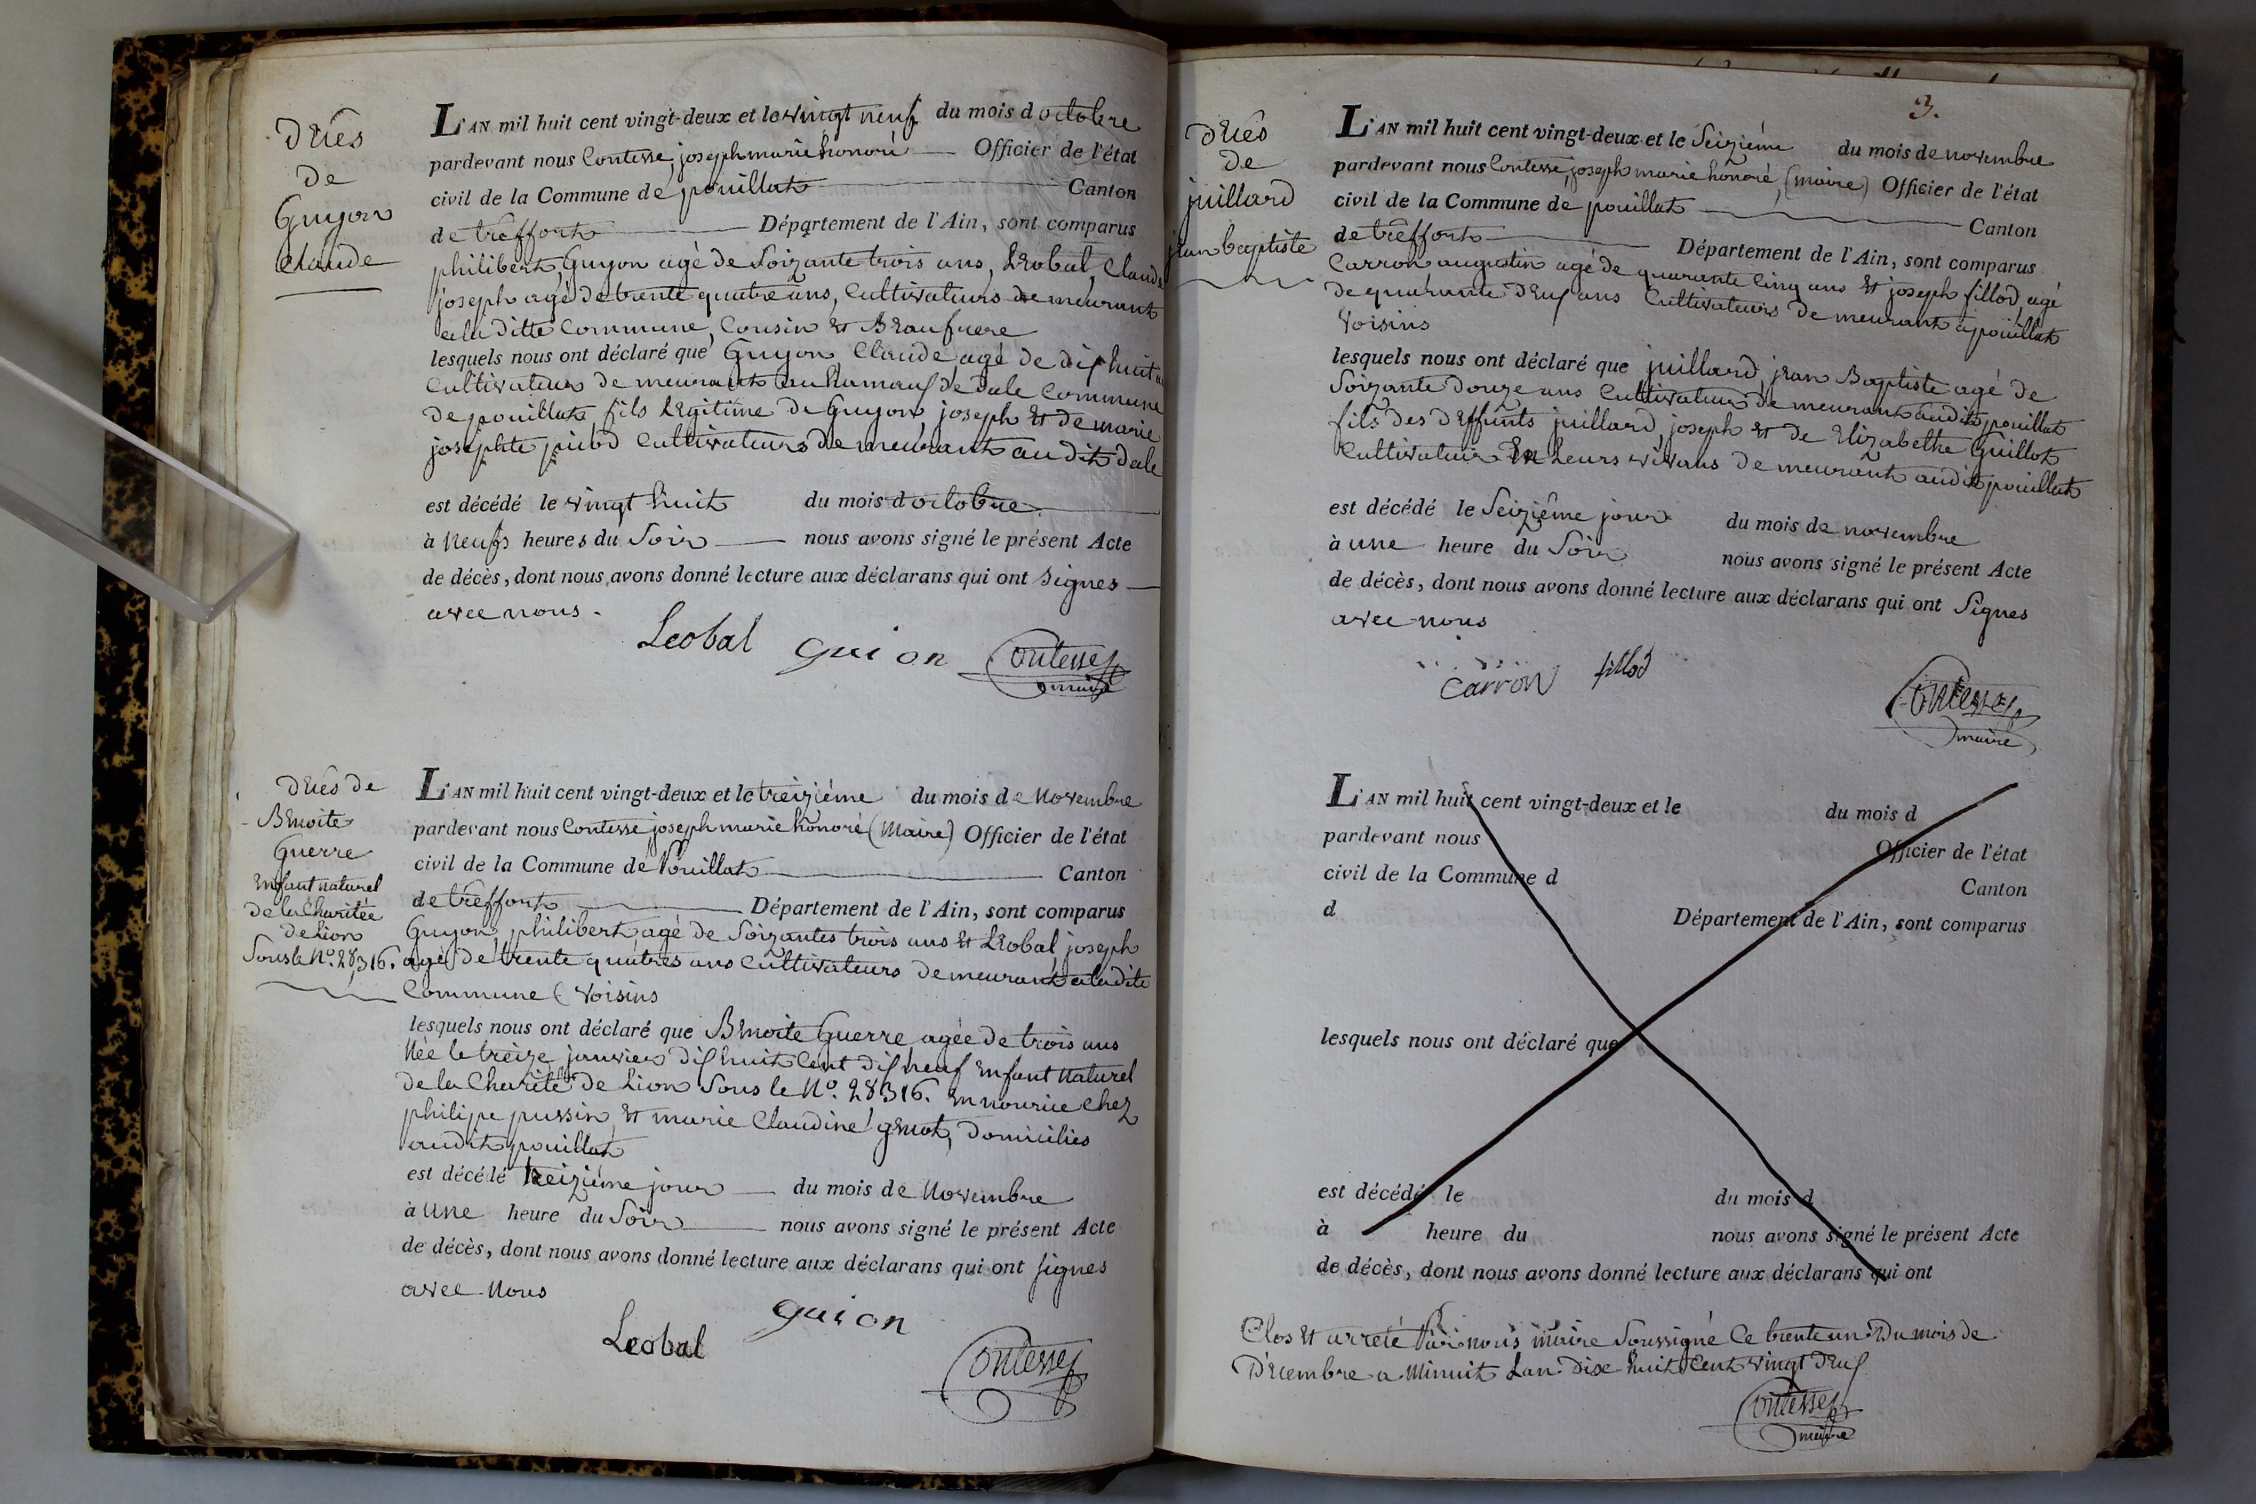 Déces
de
Guyon
Claude
L'AN mil huit cent vingt-deux et le vingt neuf du mois d octobre
pardevant nous Contesse, joseph marie honoré Officier de l'état
civil de la Commune de pouillat Canton
de treffort Département de l'Ain, sont comparus
philibert Guyon agé de Soizante trois ans, Léobal, Claude
joseph agé de trente quatre ans, Cultivateurs demeurant
a la ditte Commune, Cousin et Beaufrere
lesquels nous ont déclaré que Guyon Claude agé de dix huit
Cultivateur demeurant au hamaux de dale Commune
de pouillat fils Légitime de Guyon joseph et de marie
josephte Cultivateurs demeurant au dit dale
est décédé le vingt huit du mois d octobre
à neufs heures du Soir nous avons signé le présent Acte
de décès, dont nous avons donné lecture aux déclarans qui ont Signes
avec nous.
Leobal Guion Contesse
maire
Déces de
Benoite
Guerre
Enfant naturel
de la Charitée
de Lion
Sous le No. 28316.
L'AN mil huit cent vingt-deux et le treiziéme du mois de Novembre
pardevant nous Contesse joseph marie honoré (Maire) Officier de l'état
civil de la Commune de Pouillat Canton
de treffort Département de l'Ain, sont comparus
Guyon, philibert agé de Soizantes trois ans et Léobal joseph
agé de trente quatres ans Cultivateurs demeurant a la dite
Commune (Voisins
lesquels nous ont déclaré que Benoite Guerre agée de trois ans
Née le treize janvier dix huit Cent dix neuf Enfant Naturel
de la Charité de Lion Sous le No. 28316. En nourice chez
philipe pussin, et marie Claudine genot, Domicilies
audit pouillat
est décédé treiziéme jour du mois de Novembre
à une heure du Soir nous avons signé le présent Acte
de décès, dont nous avons donné lecture aux déclarans qui ont signes
avec Nous
Leobal Guion
Contesse
3.
Déces
de
juillard
jean baptiste
L'AN mil huit cent vingt-deux et le Seiziéme du mois de novembre
pardevant nous Contesse, joseph marie honoré, (Maire) Officier de l'état
civil de la Commune de pouillat Canton
de treffort Département de l'Ain, sont comparus
Carron augustin agé de quarante Cinq ans et joseph fillod, agé
de quarante deux ans Cultivateurs demeurant a pouillat
Voisins
lesquels nous ont déclaré que juillard, jean Baptiste agé de
Soizante douze ans Cultivateur demeurant audit pouillat
fils des deffunts juillard, joseph et de Elizabethe Guillot
Cultivateur En Leurs vivans demeurant audit pouillat
est décédé le Seiziême jour du mois de novembre
à une heure du Soir nous avons signé le présent Acte
de décès, dont nous avons donné lecture aux déclarans qui ont Signes
avec nous
Carron fillod
Contesse
maire
L'AN mil huit cent vingt-deux et le du mois d
pardevant nous Officier de l'état
civil de la Commune d Canton
d Département de l'Ain, sont comparus
lesquels nous ont déclaré que
est décédé le du mois d
à heure du nous avons signé le présent Acte
de décès, dont nous avons donné lecture aux déclarans qui ont
Clos et arreté Par nous maire Soussigné Ce trente un Du mois de
Décembre a Minuit Lan Dixe huit Cent vingt deux
Contesse
maire